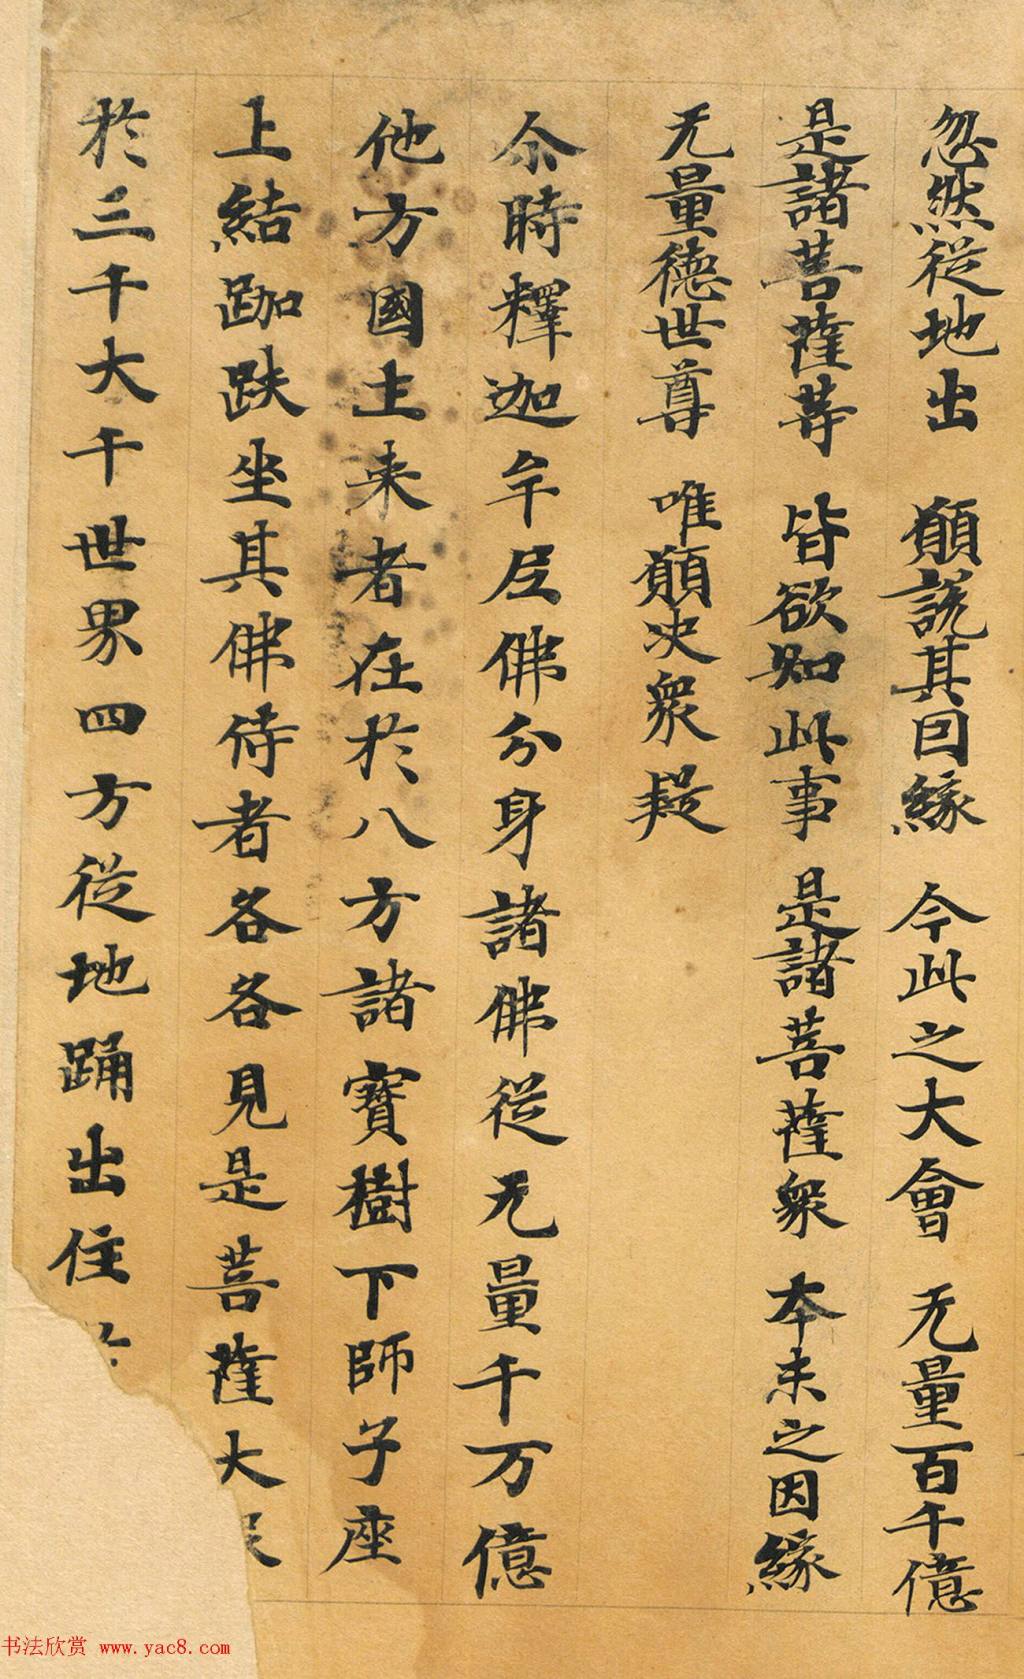 忽然從地出 願說其回緣 今此之大會 无量百千億
是諸菩薩等 皆欲知此事 是諸菩薩衆 本末之因緣
无量德世尊 唯願决衆疑
尒時釋迦牟尼佛分身諸佛從无量千万億
他方國土来者在於八方諸寶樹下師子座
上結跏趺坐其佛侍者各各見是菩薩大
於三千大千世界四方從地踊出住
书法欣赏 www.yac8.com